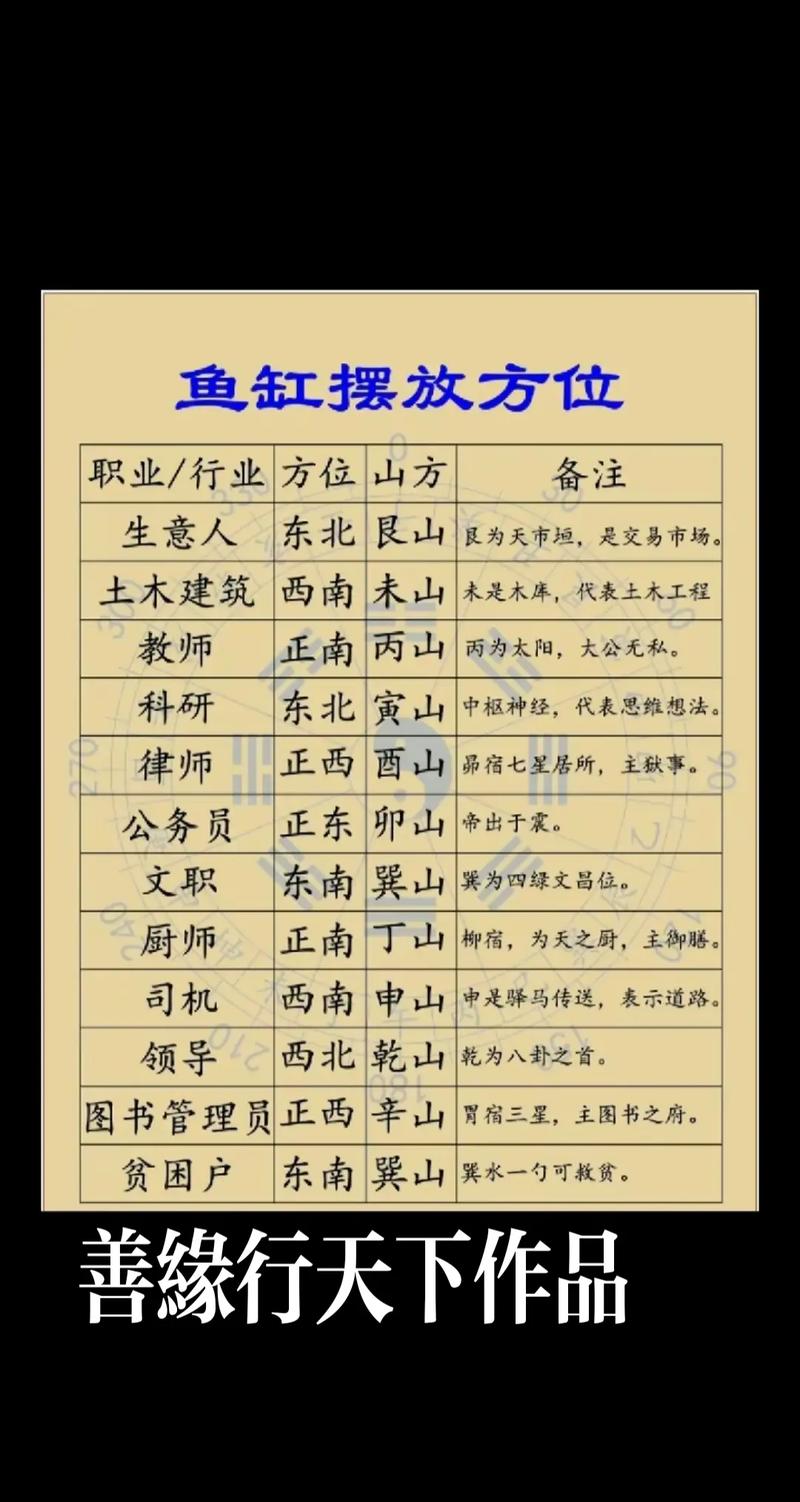 鱼缸摆放方位
职业/行业 方位 山方 备注
生意人 东北 艮山 艮为天市垣，是交易市场。
土木建筑 西南 未山 未是木库，代表土木工程
教师 正南 丙山 丙为太阳，大公无私。
科研 东北 寅山 中枢神经，代表思维想法。
律师 正西 酉山 昴宿七星居所，主狱事。
公务员 正东 卯山 帝出于震。
文职 东南 巽山 巽为四绿文昌位。
厨师 正南 丁山 柳宿，为天之厨，主御膳。
司机 西南 申山 申是驿马传送，表示道路。
领导 西北 乾山 乾为八卦之首。
图书管理员 正西 辛山 胃宿三星，主图书之府。
贫困户 东南 巽山 巽水一勺可救贫。
0
30
90
180
210
240
270
330
善緣行天下作品